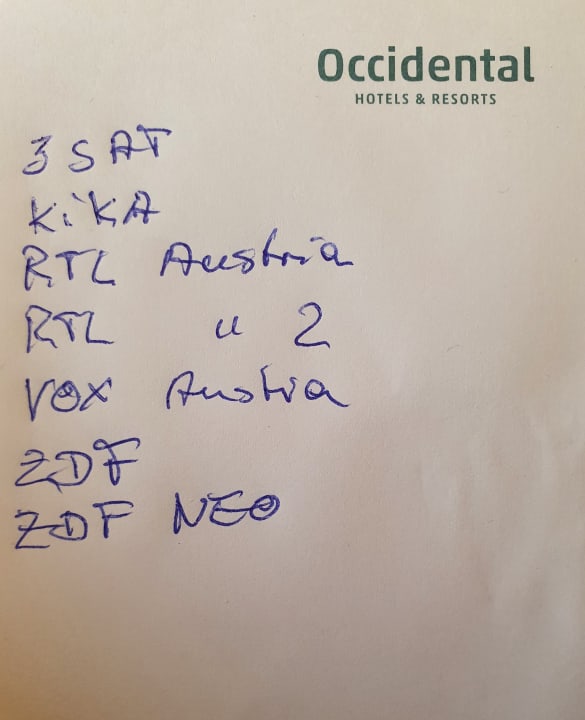 Occidental
HOTELS & RESORTS
3 SAT
KiKA
RTL Austria
RTL " 2
VOX Austria
ZDF
ZDF NEO